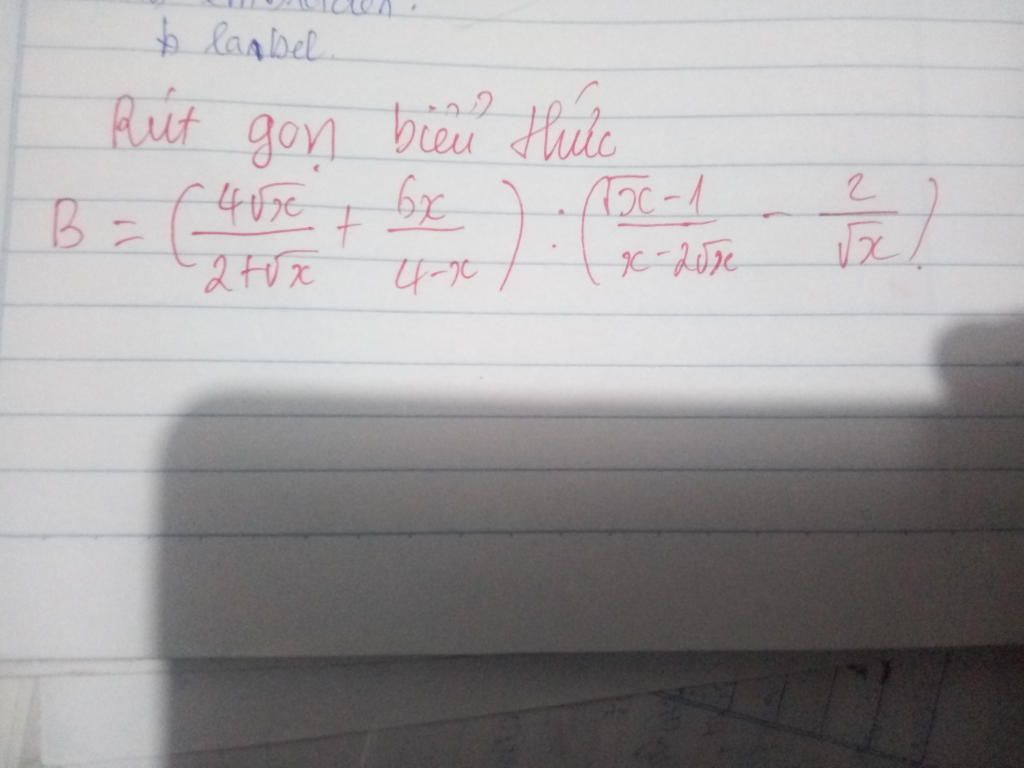 b lanbel.
Rút gọn biểu thức
B = (4√x / 2+√x + 6x / 4-x) : (√x-1 / x-2√x - 2 / √x)